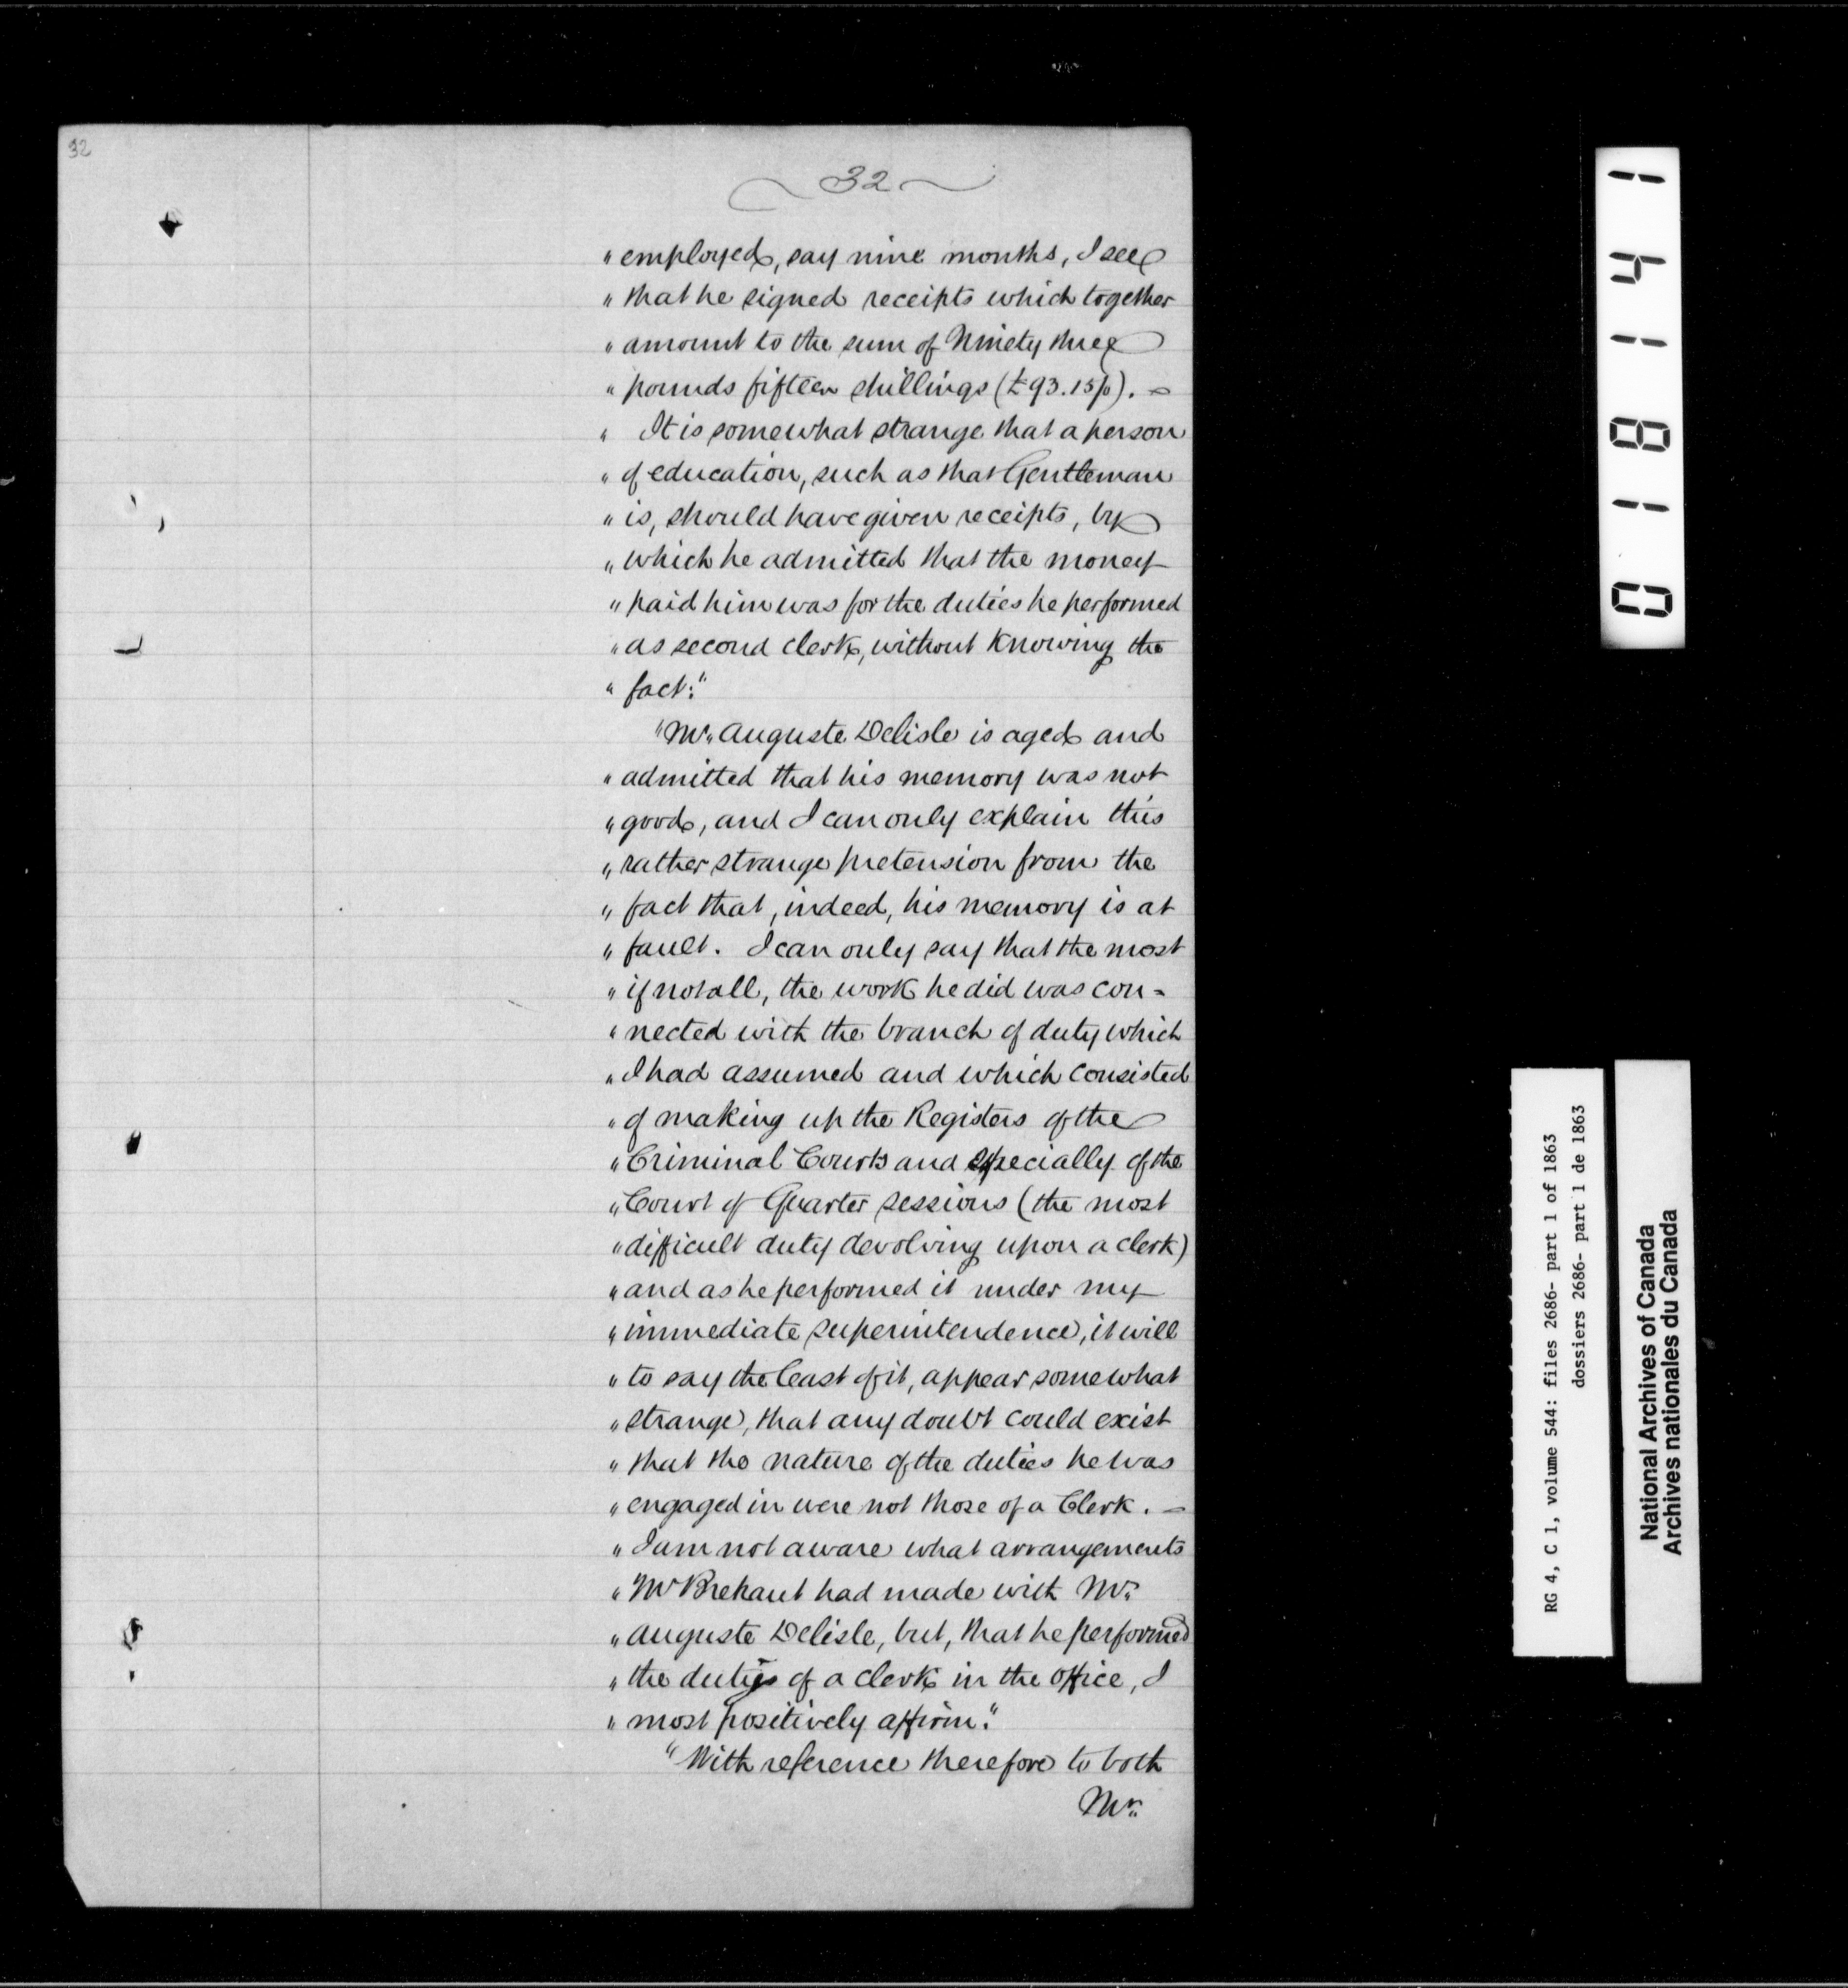 32
32
" employed, say nine months, I see
" that he signed receipts which together
" amount to the sum of Ninety three
" pounds fifteen shillings (£93.15/0). -
" It is somewhat strange that a person
" of education, such as that Gentleman
" is, should have given receipts, by
" which he admitted that the money
" paid him was for the duties he performed
" as second clerk, without knowing the
" fact."
"Mr. Auguste Delisle is aged and
" admitted that his memory was not
" good, and I can only explain this
" rather strange pretension from the
" fact that, indeed, his memory is at
" fault. I can only say that the most
" if not all, the work he did was con=
" nected with the branch of duty which
" I had assumed and which consisted
" of making up the Registers of the
" Criminal Courts and especially of the
" Court of Quarter sessions (the most
" difficult duty devolving upon a clerk)
" and as he performed it under my
" immediate superintendence, it will
" to say the least of it, appear somewhat
" strange, that any doubt could exist
" that the nature of the duties he was
" engaged in were not those of a Clerk. -
" I am not aware what arrangements
" Mr Brehaut had made with Mr.
" Auguste Delisle, but, that he performed
" the duties of a clerk in the office, I
" most positively affirm."
"With reference therefore to both
Mr.
018141
RG 4, C 1, volume 544: files 2686- part 1 of 1863
dossiers 2686- part 1 de 1863
National Archives of Canada
Archives nationales du Canada